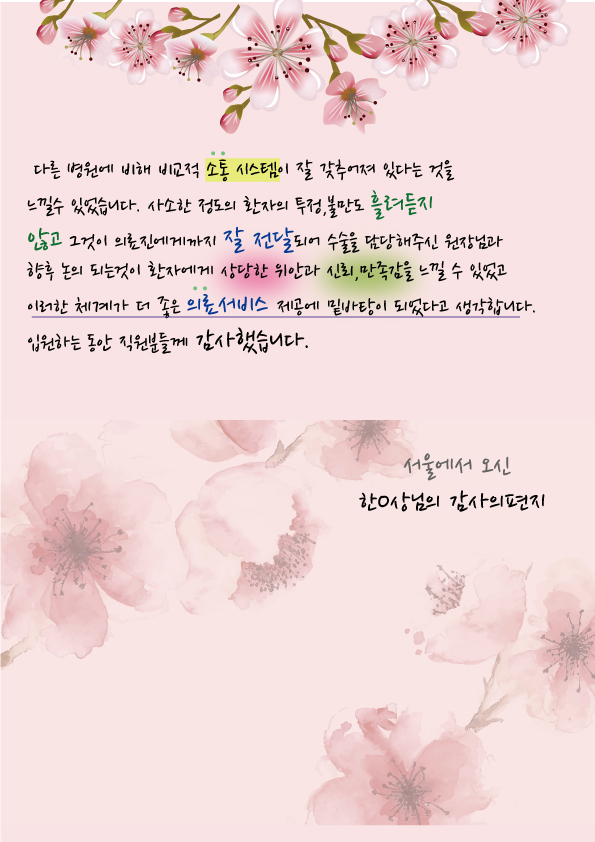 다른 병원에 비해 비교적 소통 시스템이 잘 갖추어져 있다는 것을
느낄수 있었습니다. 사소한 정도의 환자의 투정,불만도 흘려듣지
않고 그것이 의료진에게까지 잘 전달되어 수술을 담당해주신 원장님과
향후 논의 되는것이 환자에게 상당한 위안과 신뢰,만족감을 느낄 수 있었고
이러한 체계가 더 좋은 의료서비스 제공에 밑바탕이 되었다고 생각합니다.
입원하는 동안 직원분들께 감사했습니다.
서울에서 오신
한O상님의 감사의편지